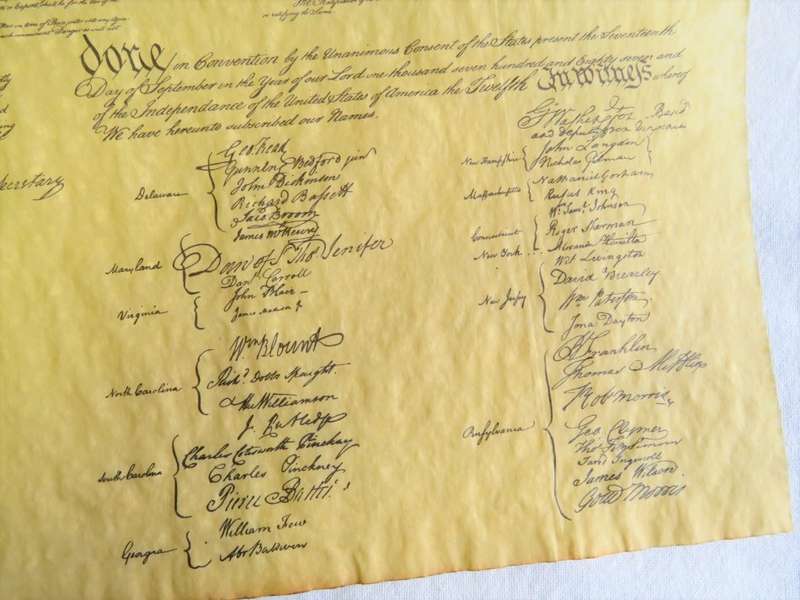 done in Convention by the Unanimous Consent of the States present the Seventeenth
Day of September in the Year of our Lord one thousand seven hundred and Eighty seven and
of the Independance of the United States of America the Twelfth In witness whereof
We have hereunto subscribed our Names.
Secretary
Delaware
Geo: Read
Gunning Bedford jun
John Dickinson
Richard Bassett
Jaco: Broom
Maryland
James McHenry
Dan of St Thos Jenifer
Danl Carroll
Virginia
John Blair —
James Madison Jr
North Carolina
Wm Blount
Richd Dobbs Spaight
Hu Williamson
South Carolina
J. Rutledge
Charles Cotesworth Pinckney
Charles Pinckney
Pierce Butler
Georgia
William Few
Abr Baldwin
Go Washington
and deputy from Virginia
New Hampshire
John Langdon
Nicholas Gilman
Massachusetts
Nathaniel Gorham
Rufus King
Connecticut
Wm Saml Johnson
Roger Sherman
New York ...
Alexander Hamilton
New Jersey
Wil Livingston
David Brearley
Wm Paterson
Jona Dayton
Pensylvania
B Franklin
Thomas Mifflin
Robt Morris
Geo. Clymer
Thos FitzSimons
Jared Ingersoll
James Wilson
Gouv Morris